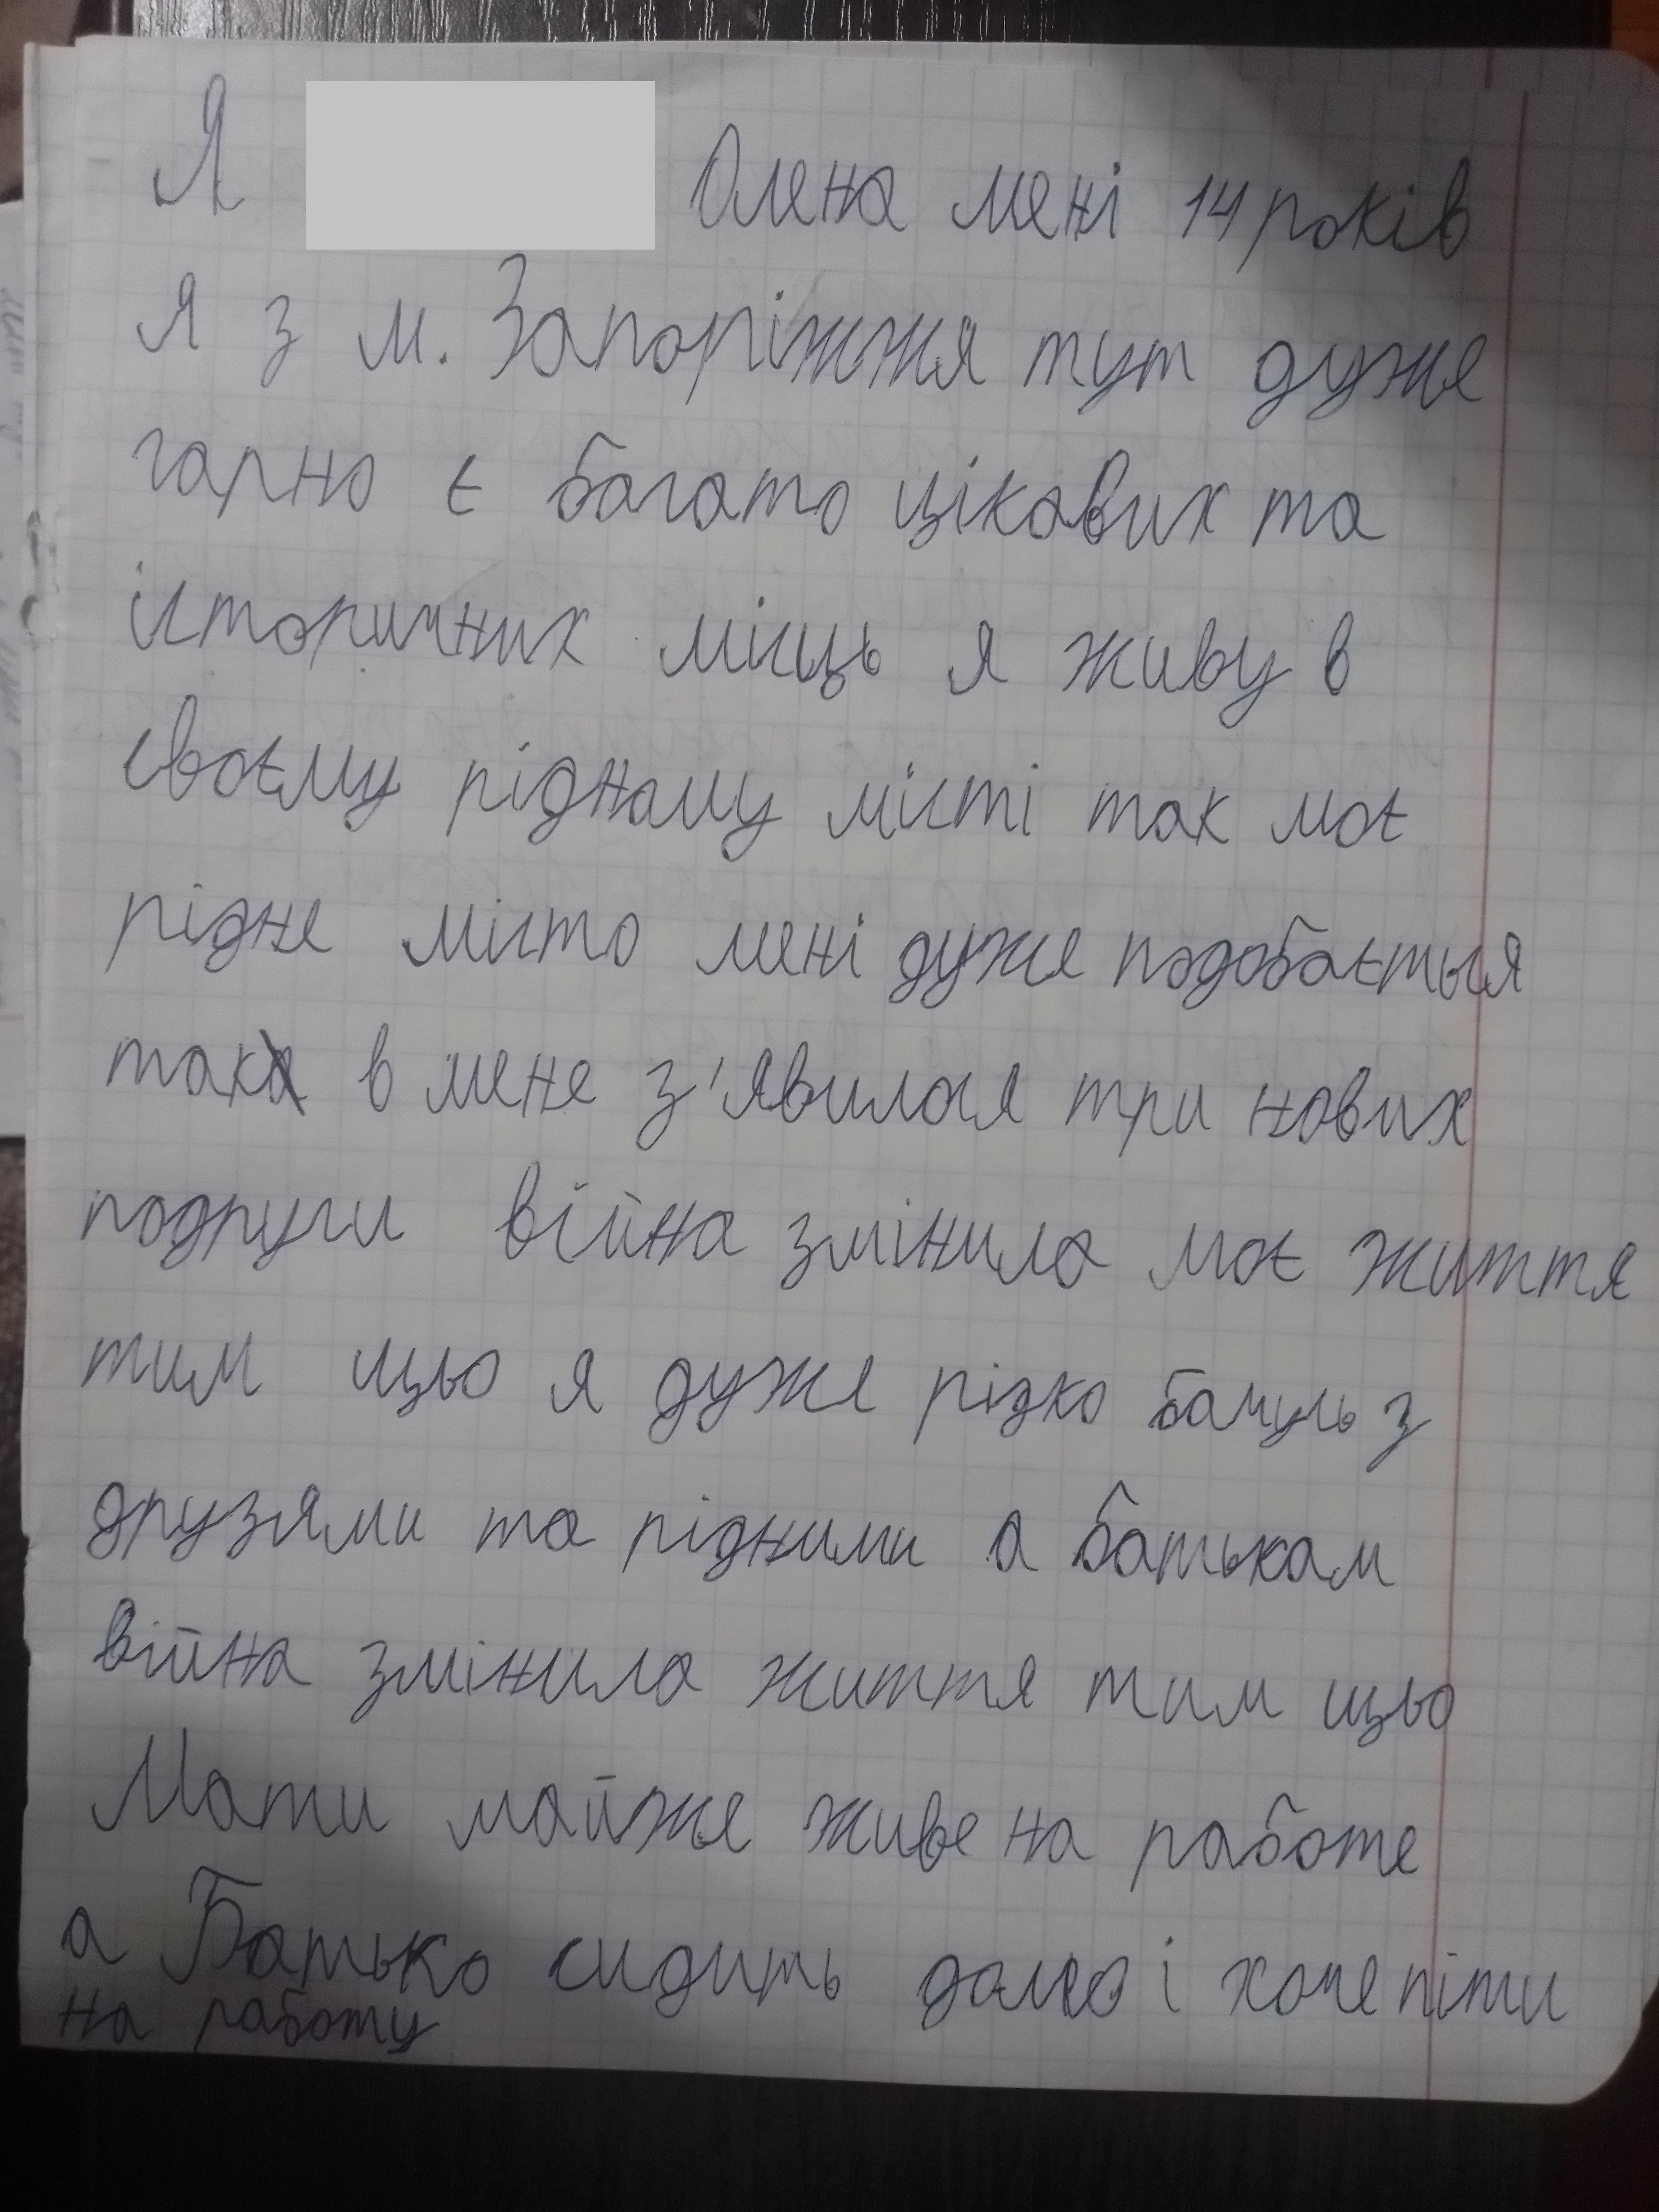 Я Олена мені 14 років
я з м. Запоріжжя тут дуже
гарно є багато цікавих та
історичних місць я живу в
своєму рідному місті так моє
рідне місто мені дуже подобається
так в мене з'явилося три нових
подруги війна змінила моє життя
тим що я дуже різко бачусь з
друзями та рідними а батькам
війна змінила життя тим що
Мати майже живе на работе
а Батько сидить дома і хоче піти
на работу